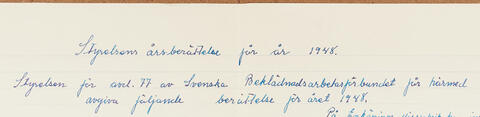 Styrelsens årsberättelse för år 1948.
Styrelsen för avd. 77 av Svenska Beklädnadsarbetareförbundet får härmed
avgiva följande berättelse för året 1948.
På